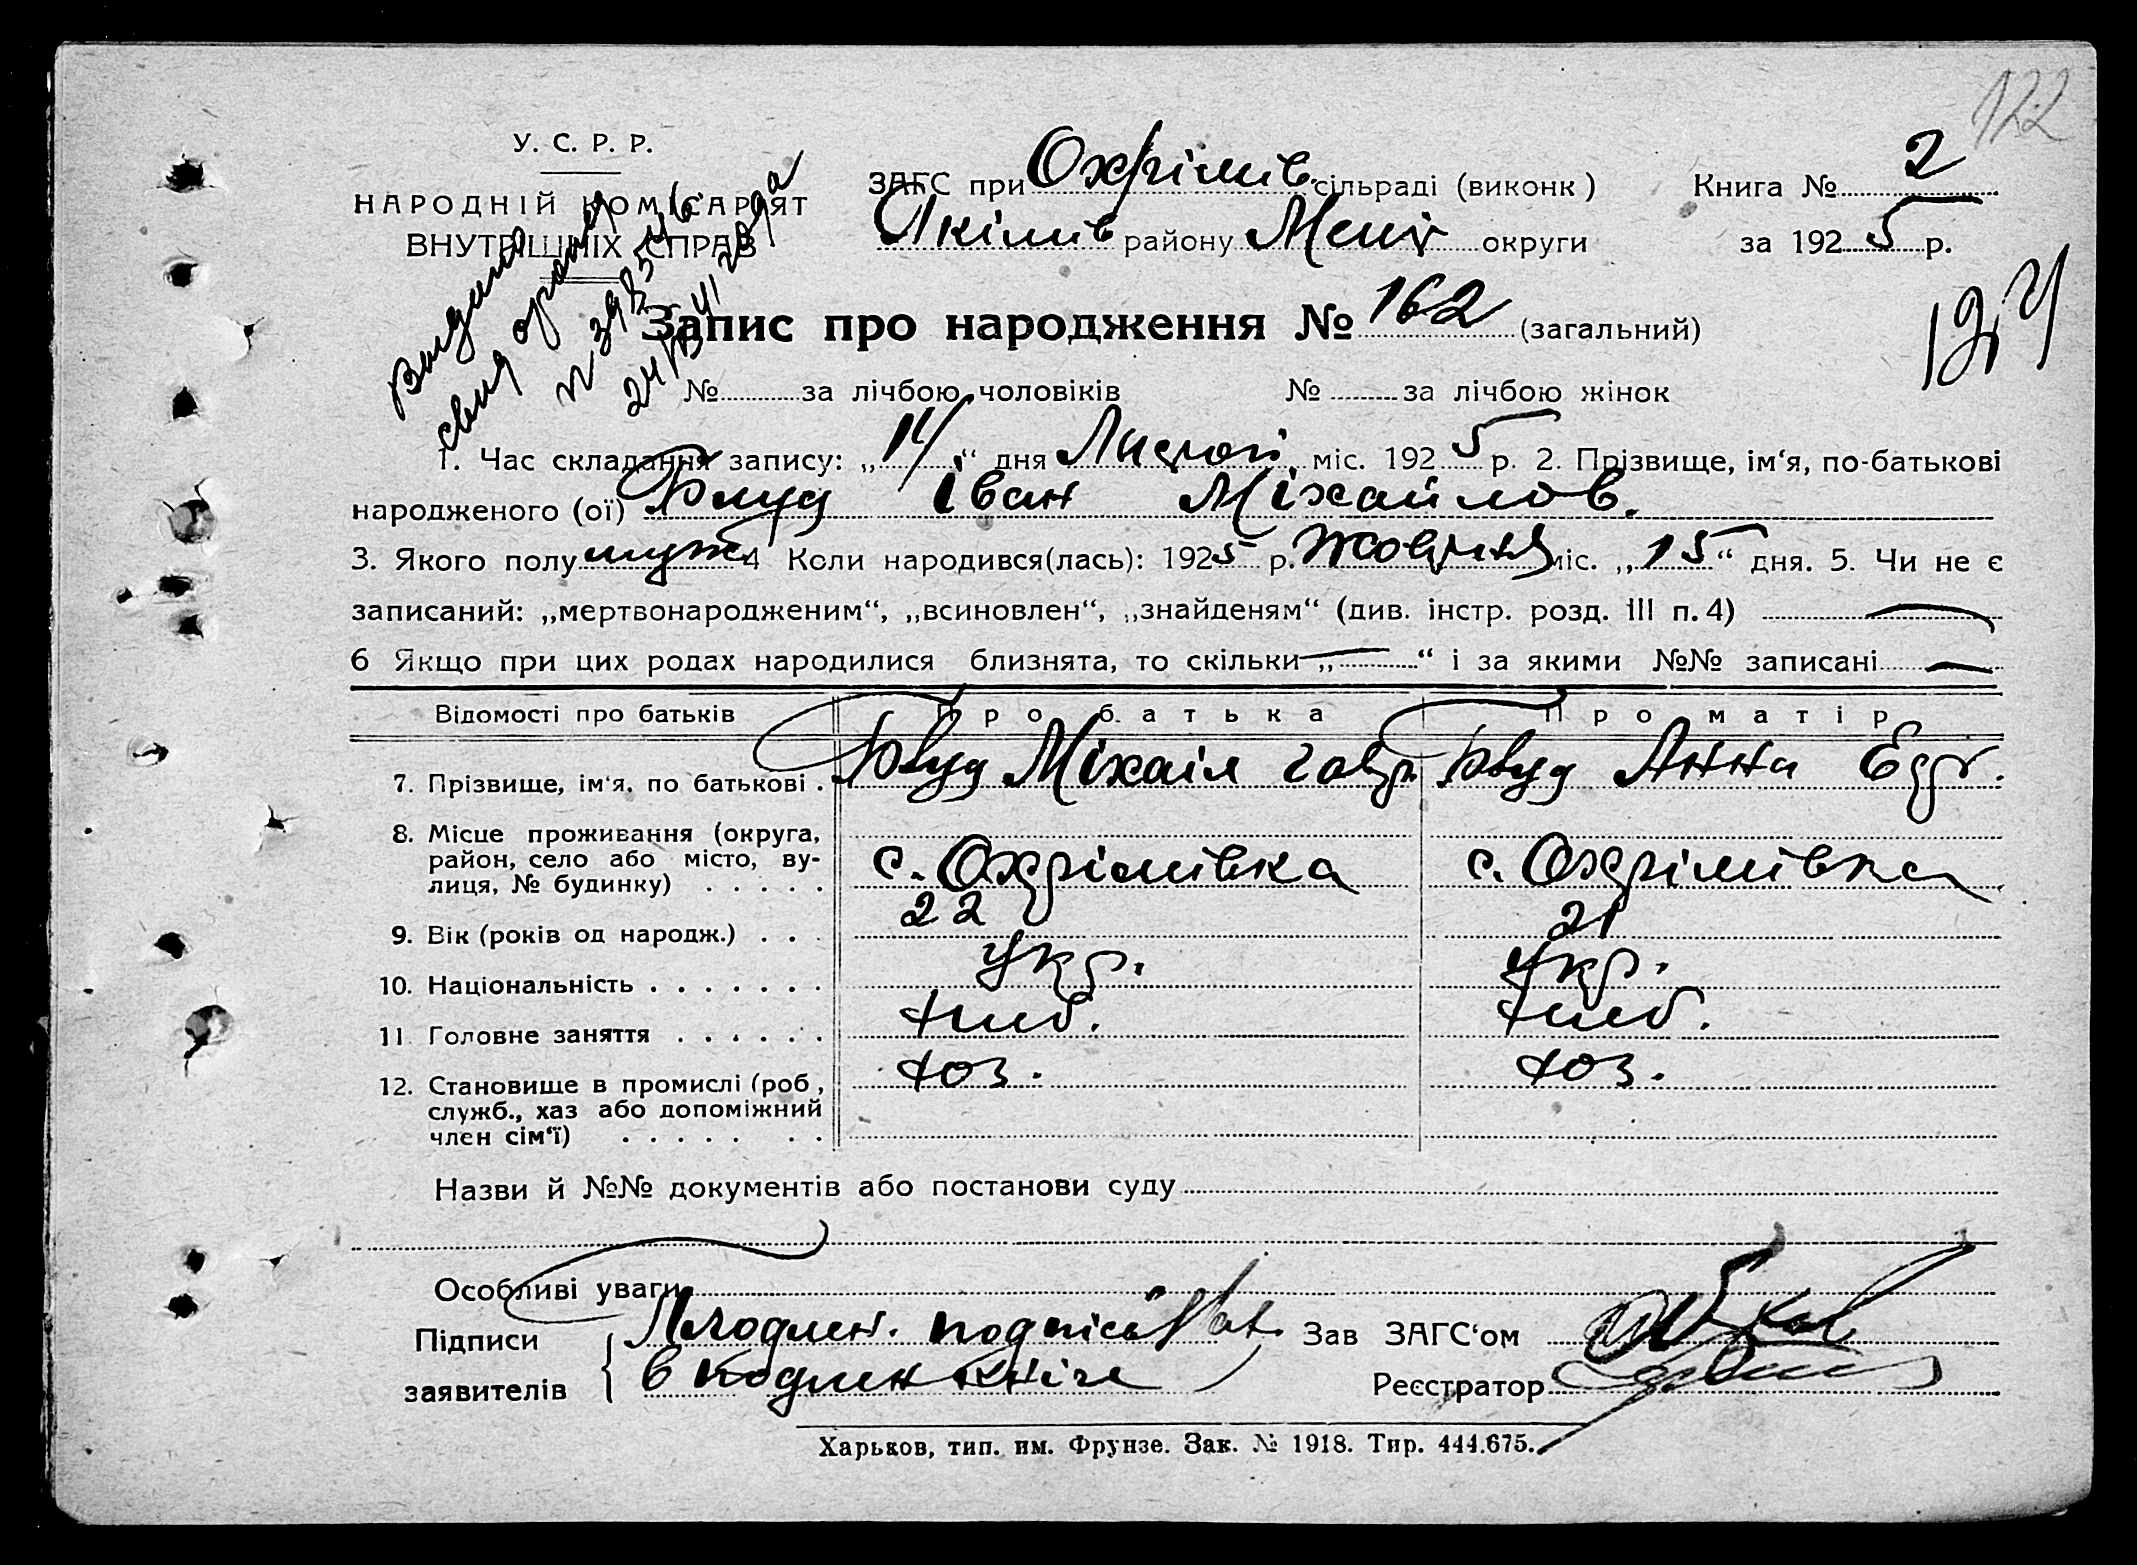 122
У. С. Р. Р.
НАРОДНІЙ КОМІСАРІЯТ
ВНУТРІШНІХ СПРАВ
ЗАГС при Охрімів. сільраді (виконк)
Якімів району Меліт округи
Книга № 2
за 1925 р.
Запис про народження № 162 (загальний)
№ за лічбою чоловіків № за лічбою жінок
1. Час складання запису: „14“ дня Листоп. міс. 1925 р. 2. Прізвище, ім‘я, по-батькові
народженого (ої) Іван Міхайлов.
3. Якого полу муж 4 Коли народився(лась): 1925 р. Жовтня міс. „15“ дня. 5. Чи не є
записаний: „мертвонародженим“, „всиновлен“, „знайденям“ (див. інстр. розд. III п. 4)
6 Якщо при цих родах народилися близнята, то скільки „—“ і за якими №№ записані —
Відомості про батьків Про батька Про матір
7. Прізвище, ім‘я, по батькові . Міхаіл Анна
8. Місце проживання (округа,
район, село або місто, ву-
лиця, № будинку) . . . . . с. Охрімівка с. Охрімівка
9. Вік (років од народж.) . . . 22 21
10. Національність . . . . . . . Укр. Укр.
11 Головне заняття . . . . . . хліб. хліб.
12. Становище в промислі (роб, хоз. хоз.
служб., хаз або допоміжний
член сім‘ї) . . . . . . .
Назви й №№ документів або постанови суду
Особливі уваги
Підписи
заявителів
подписи
в подлен кніге
Зав ЗАГС‘ом
Реєстратор
Харьков, тип. им. Фрунзе. Зак. № 1918. Тир. 444.675.